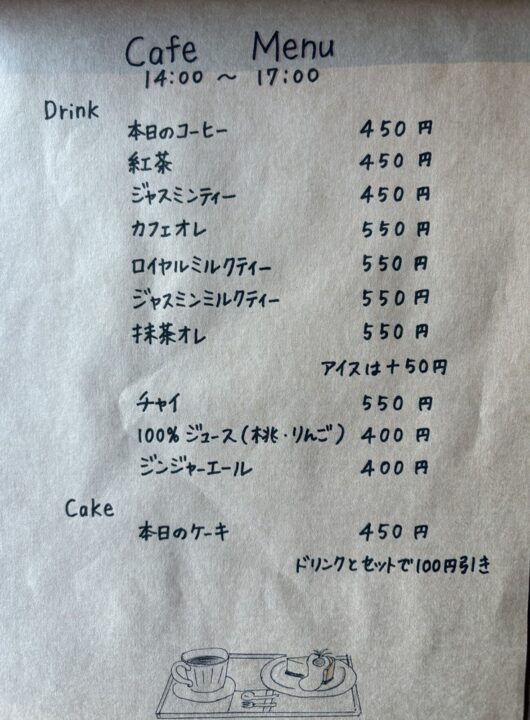 Cafe Menu
14:00 ～ 17:00
Drink
本日のコーヒー 450 円
紅茶 450 円
ジャスミンティー 450 円
カフェオレ 550 円
ロイヤルミルクティー 550 円
ジャスミンミルクティー 550 円
抹茶オレ 550 円
アイスは＋50円
チャイ 550 円
100% ジュース (桃・りんご) 400 円
ジンジャーエール 400 円
Cake
本日のケーキ 450 円
ドリンクとセットで100円引き